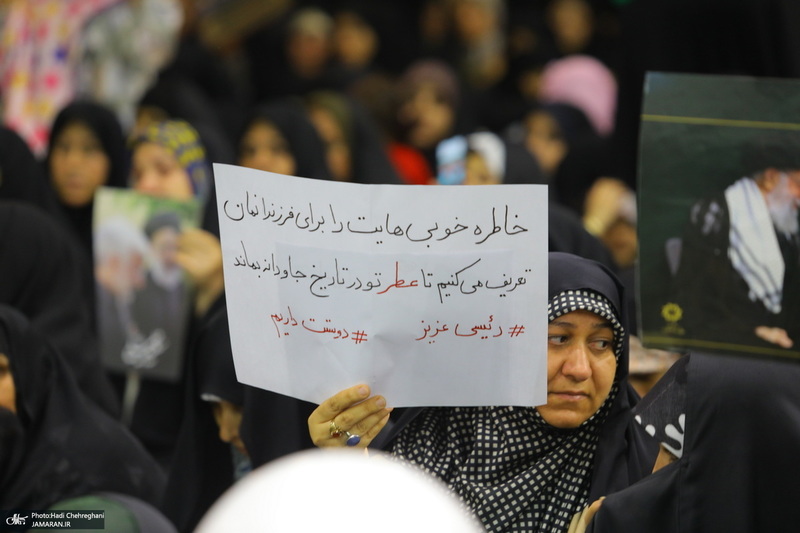 خاطره خوبی هایت را برای فرزندانمان
تعریف می کنیم تا عطر تو در تاریخ جاودانه بماند
#رئیسی عزیز #دوستت داریم
Photo:Hadi Chehreghani
JAMARAN.IR